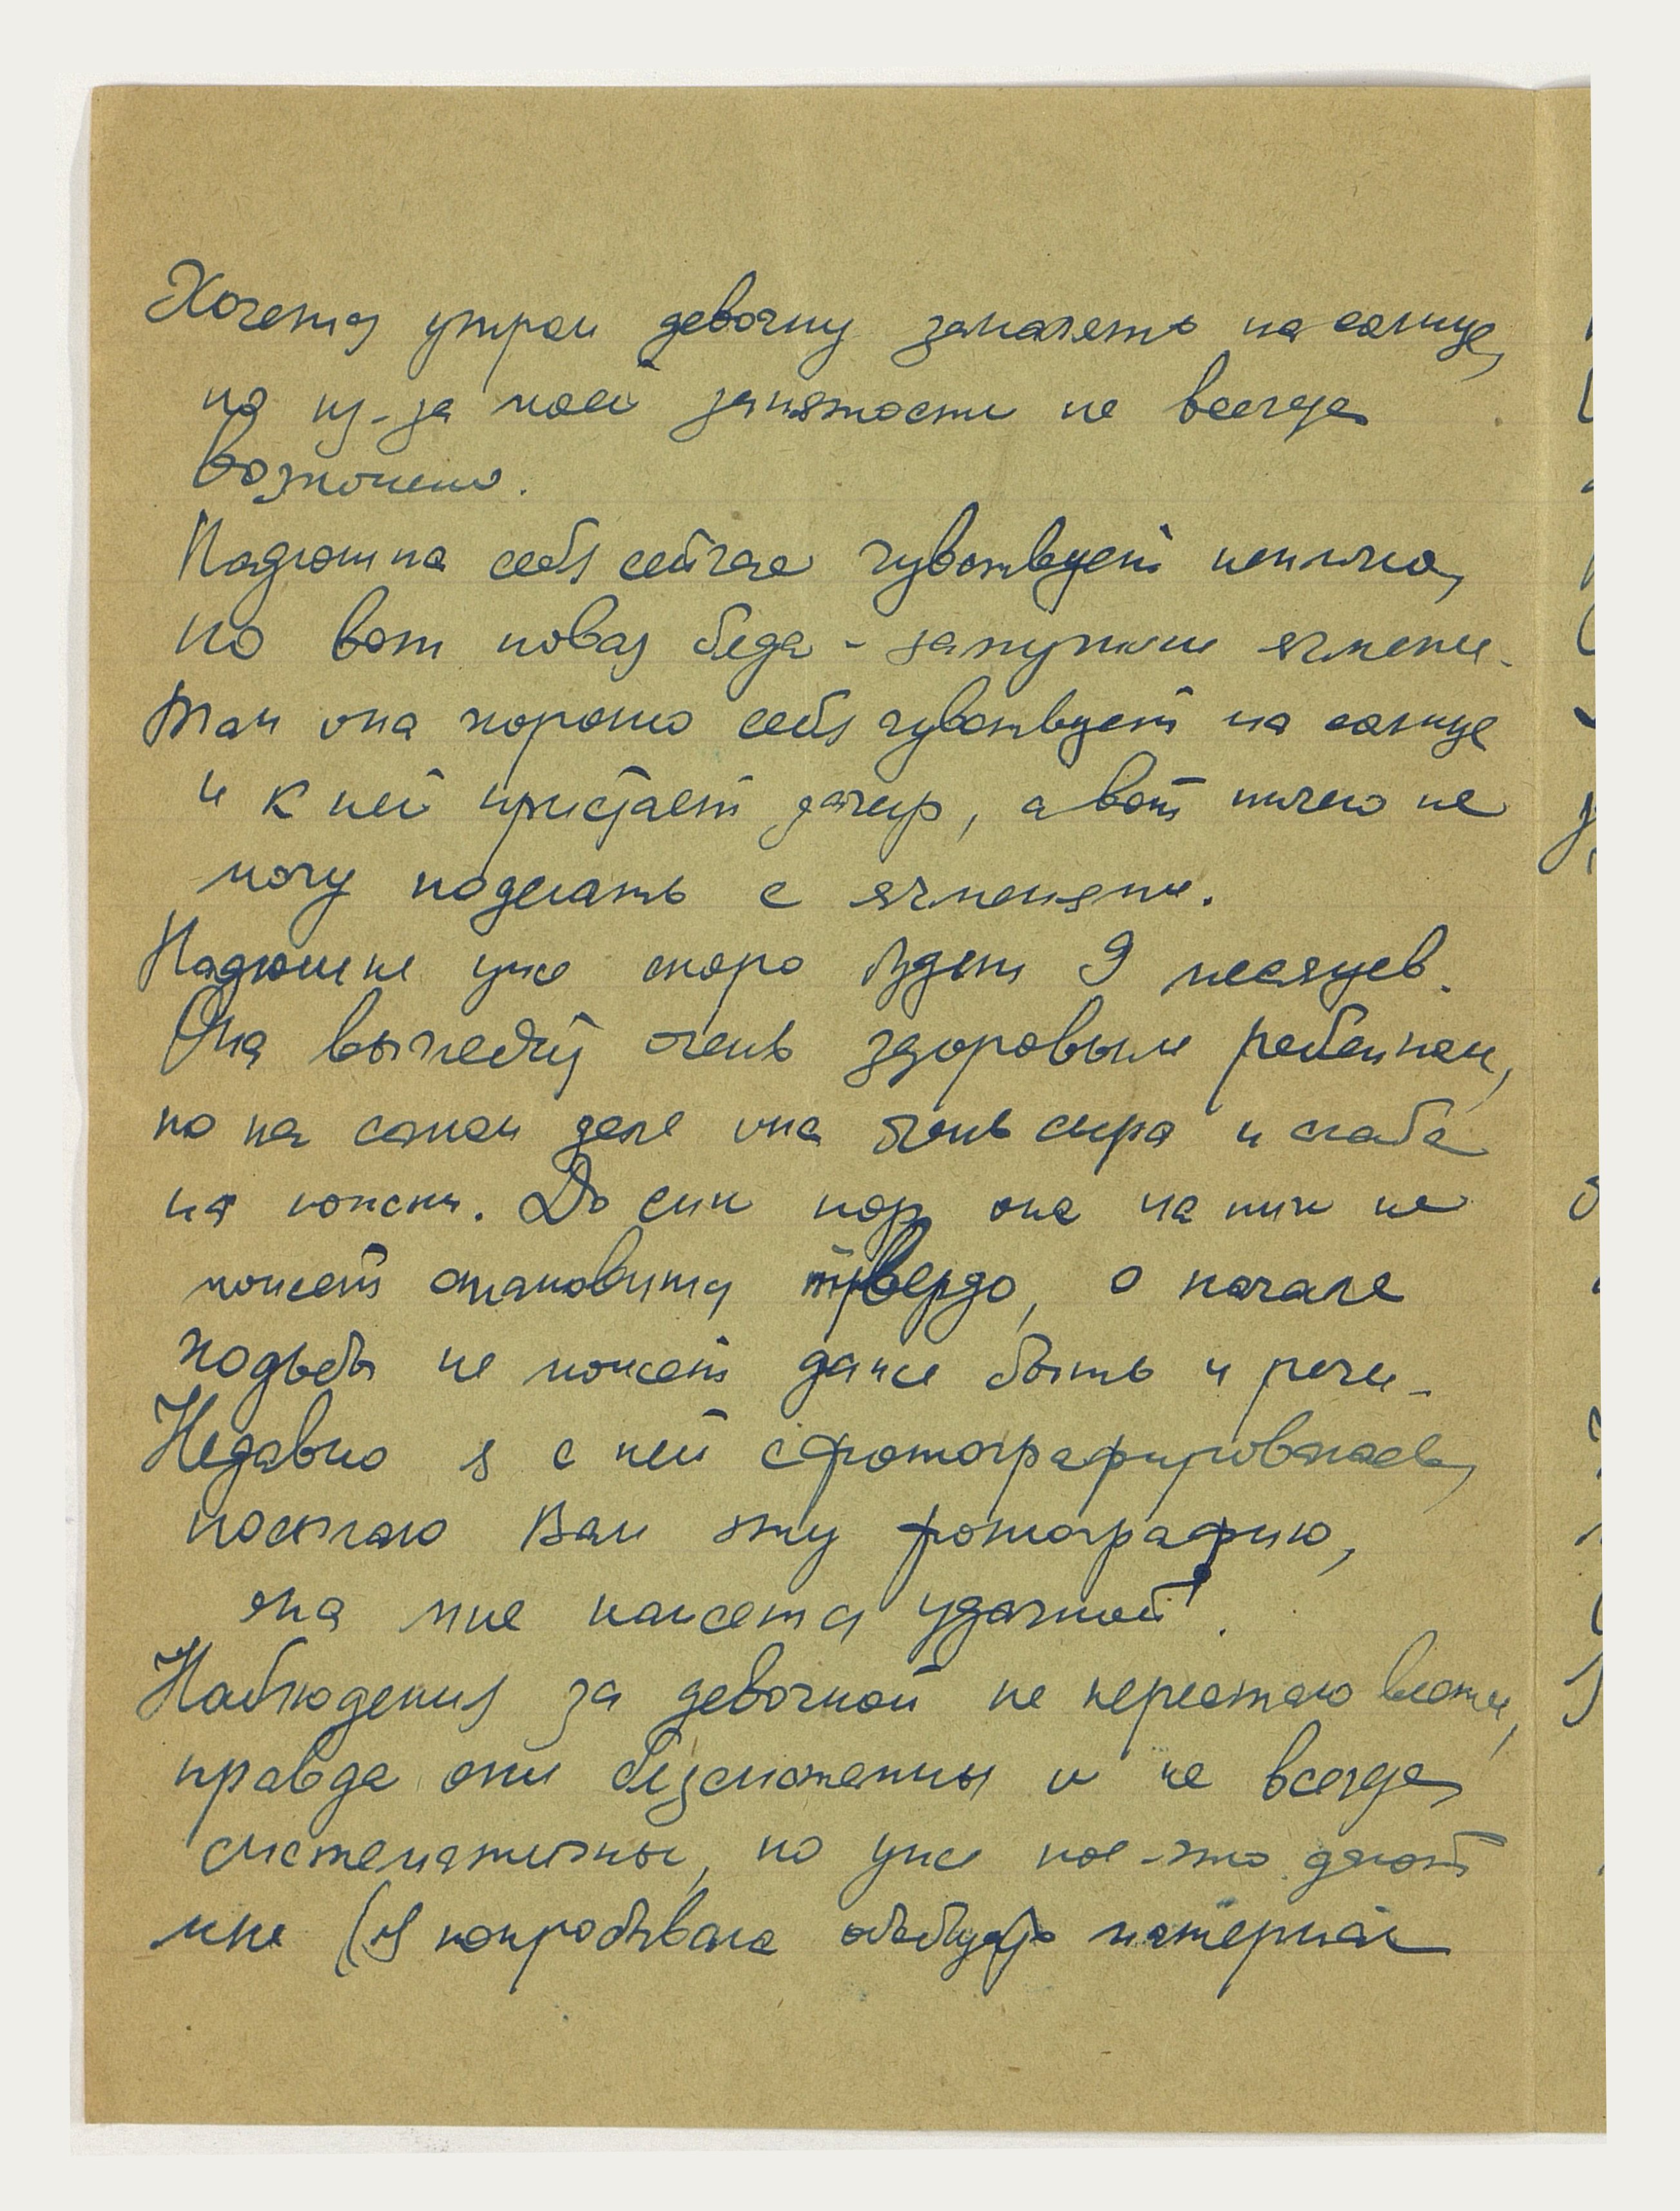 Хочется утром девочку закалять на солнце,
но из-за моей занятости не всегда
возможно.
Надюшка себя сейчас чувствует неплохо,
но вот новая беда - замучили ячмени.
Так она хорошо себя чувствует на солнце
и к ней пристает загар, а вот ничего не
могу поделать с ячменями.
Надюшке уже скоро будет 9 месяцев.
Она выглядит очень здоровым ребенком,
но на самом деле она очень сыра и слаба
на ножки. До сих пор она на них не
может становиться твердо, о начале
ходьбы не может даже быть и речи.
Недавно я с ней сфотографировалась,
посылаю Вам эту фотографию,
она мне кажется удачной.
Наблюдения за девочкой не перестаю вести,
правда они бессистемны и не всегда
систематичны, но уже кое-что дают
мне (Я попробывала материал